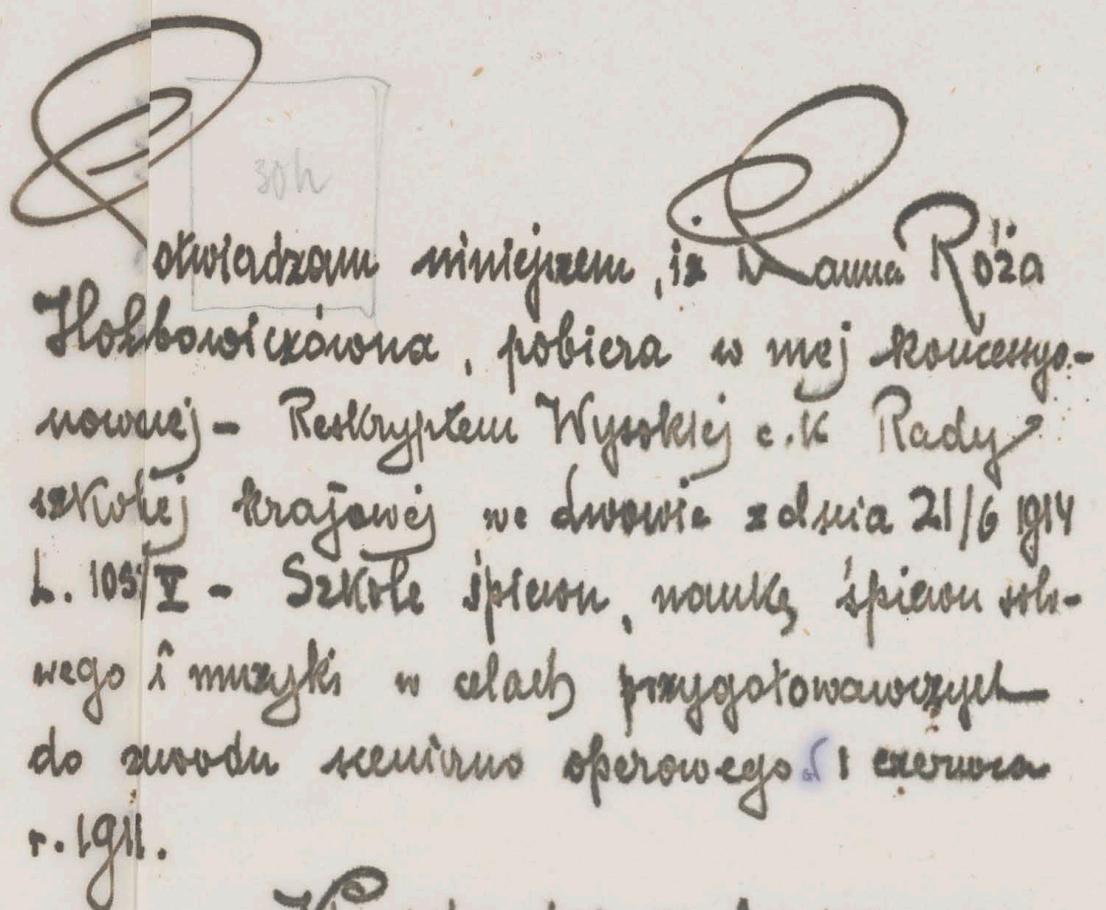 30h
Poświadzam niniejszem, iż Panna Róża
Hołbowiczówna, pobiera w mej koncessyo-
nownej - Reskryptem Wysokiej c.K Rady
szkolej krajowej we Lwowie z dnia 21/6 1914
L. 105/V - Szkole śpiewu, naukę śpiewu solo-
wego i muzyki w celach przygotowawczych
do zawodu sceniczno operowego 1 czerwca
r. 1911.